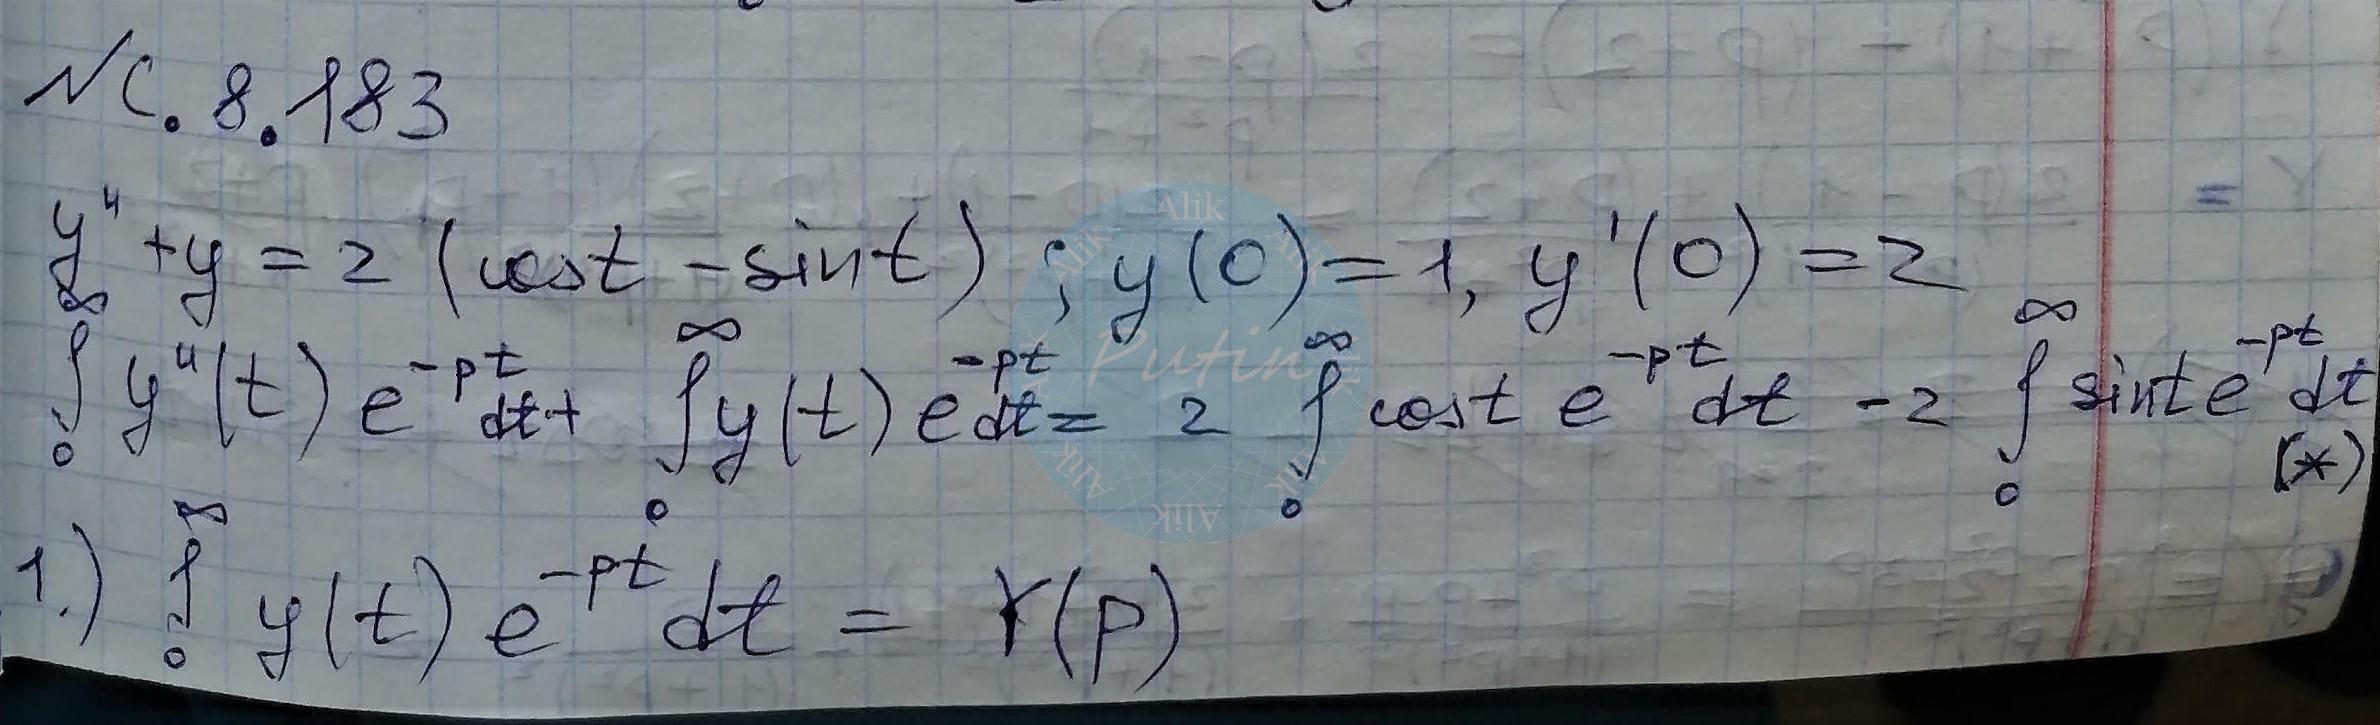 №С.8.183
y''+y=2(cost-sint); y(0)=1, y'(0)=2
∫₀^∞ y''(t)e^{-pt}dt+ ∫₀^∞ y(t)e^{-pt}dt= 2 ∫₀^∞ cost e^{-pt}dt -2 ∫₀^∞ sint e^{-pt}dt
(*)
1.) ∫₀^∞ y(t)e^{-pt}dt = Y(p)
Alik Putin